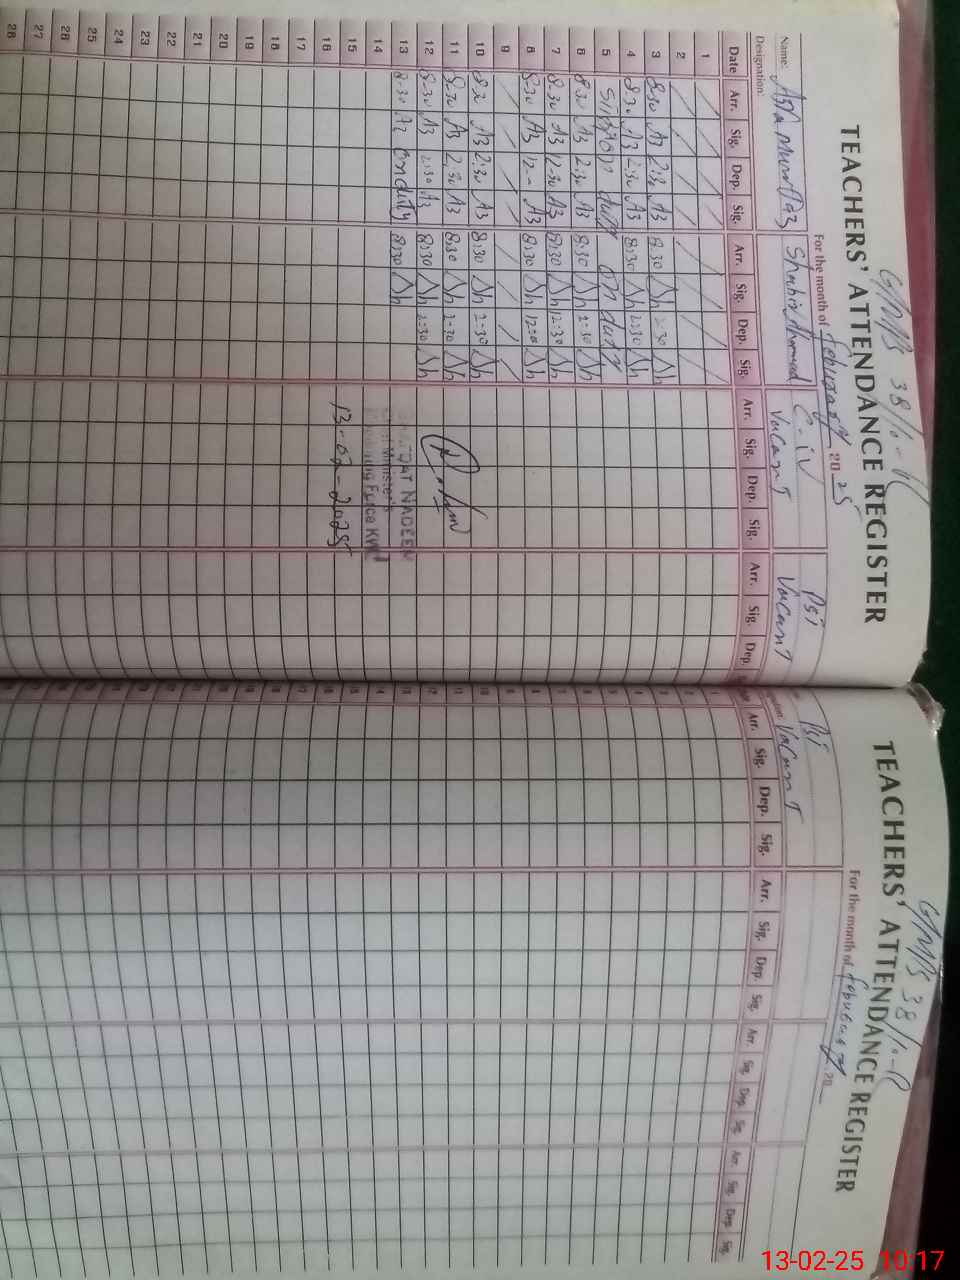 GMPS 38/10-R
TEACHERS' ATTENDANCE REGISTER
For the month of February 2025
Name: Asfa Mumtaz Shabir Ahmad C-iv Vacant PSI Vacant
Designation:
Date Arr. Sig. Dep. Sig. Arr. Sig. Dep. Sig. Arr. Sig. Dep. Sig. Arr. Sig. Dep.
1
2
3 8:30 A3 2:30 A3 8:30 Sh 2:30 Sh
4 8:30 A3 2:30 A3 8:30 Sh 2:30 Sh
5 duty on duty
6 8:30 A3 2:30 A3 8:30 Sh 2:30 Sh
7 8:30 A3 12:30 A3 8:30 Sh 12:30 Sh
8 8:30 A3 12:00 A3 8:30 Sh 12:00 Sh
9
10 8:30 A3 2:30 A3 8:30 Sh 2:30 Sh
11 8:30 A3 2:30 A3 8:30 Sh 2:30 Sh
12 8:30 A3 2:30 A3 8:30 Sh 2:30 Sh
13 8:30 A3 on duty 8:30 Sh
NADEEM
Minister's
Force KWL
13-02-2025
14
15
16
17
18
19
20
21
22
23
24
25
26
27
28
GMPS 38/10-R
TEACHERS' ATTENDANCE REGISTER
For the month of February 20
PSI Vacant
Arr. Sig. Dep. Sig. Arr. Sig. Dep. Sig. Arr. Sig. Dep. Sig. Arr. Sig. Dep. Sig.
1
2
3
4
5
6
7
8
9
10
11
12
13
14
15
16
17
18
19
20
21
22
23
24
25
26
27
13-02-25 10:17